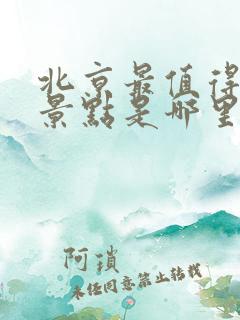 北京最值得
景點是哪里
阿瑣
未任同意禁止转载